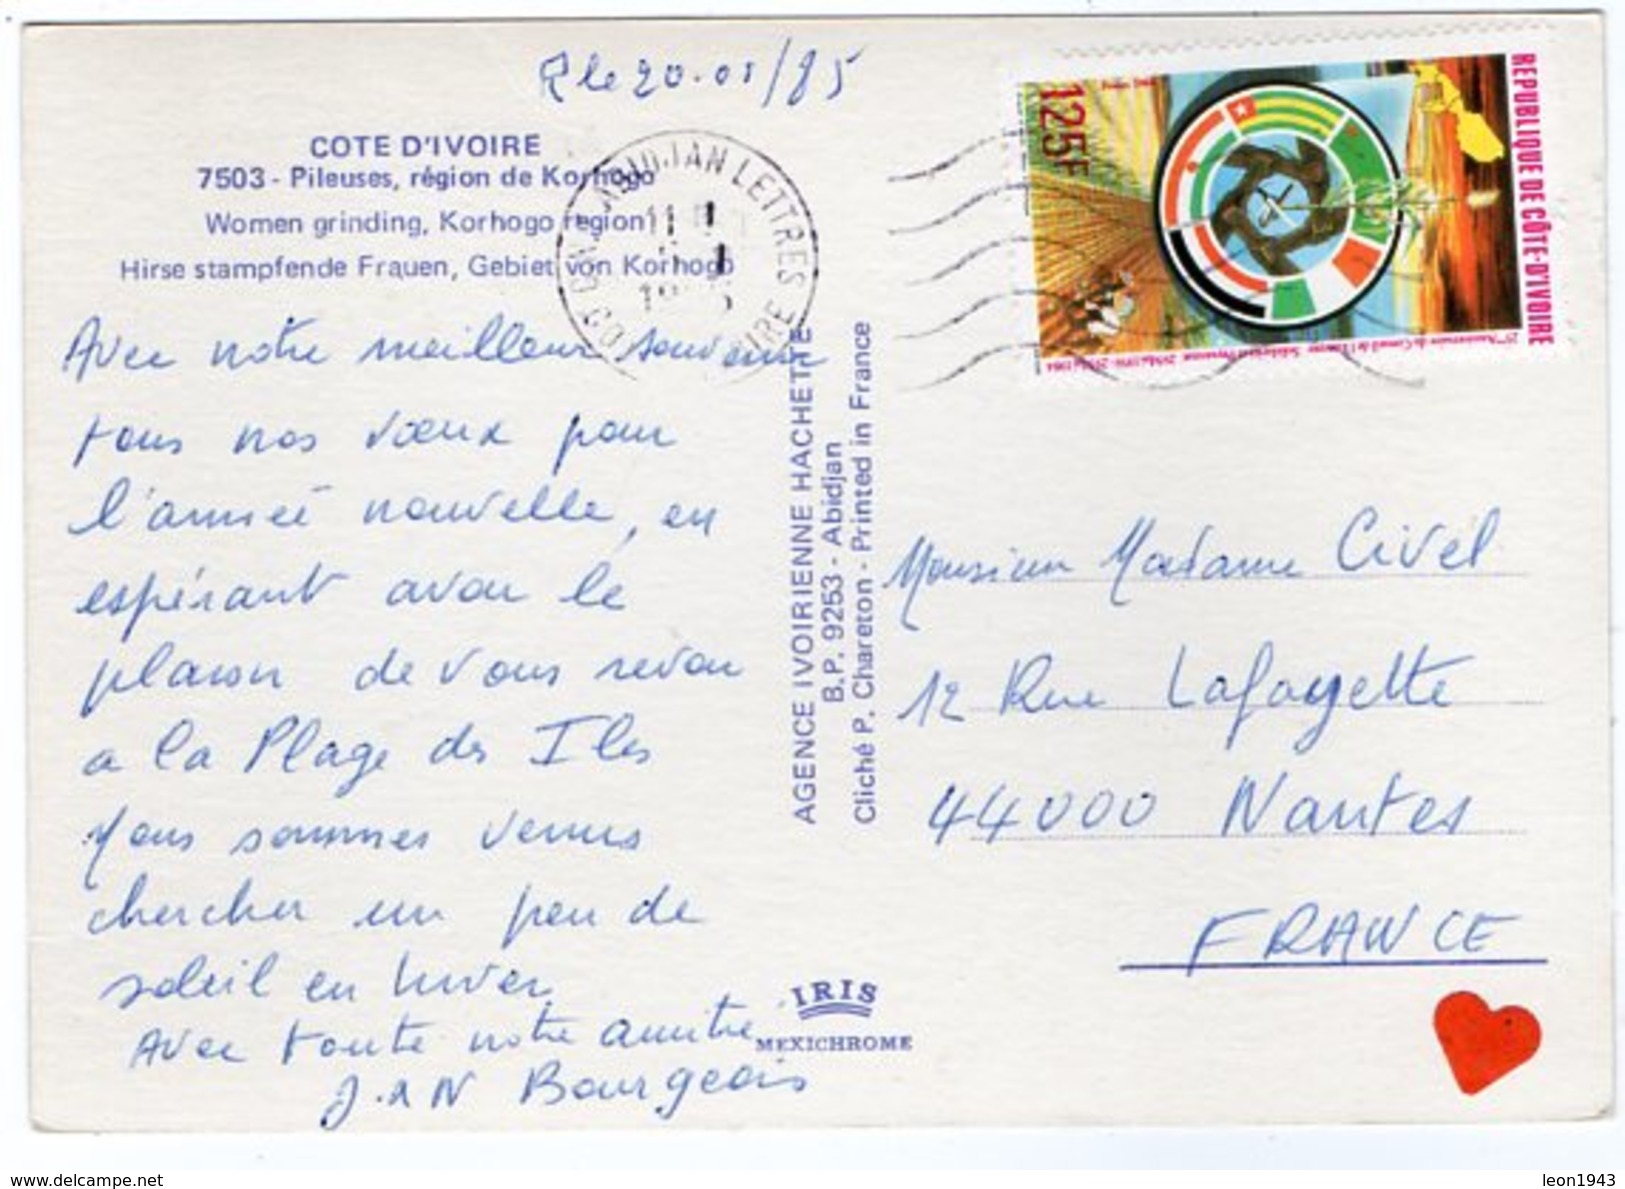 R le 20.01/85
COTE D'IVOIRE
7503 - Pileuses, région de Korhogo
Women grinding, Korhogo region
Hirse stampfende Frauen, Gebiet von Korhogo
ABIDJAN LETTRES
11 H
REPUBLIQUE DE CÔTE-D'IVOIRE
125F
25ème Anniversaire du Conseil de l'Entente
Avec notre meilleur souvenir
tous nos vœux pour
l'année nouvelle, en
espérant avoir le
plaisir de vous revoir
a la Plage des Iles
Nous sommes venus
chercher un peu de
soleil en hiver
Avec toute notre amitié
J. & N Bourgeois
AGENCE IVOIRIENNE HACHETTE
B.P. 9253 - Abidjan
Cliché P. Chareton - Printed in France
IRIS
MEXICHROME
Monsieur Madame Civel
12 Rue Lafayette
44000 Nantes
FRANCE
leon1943